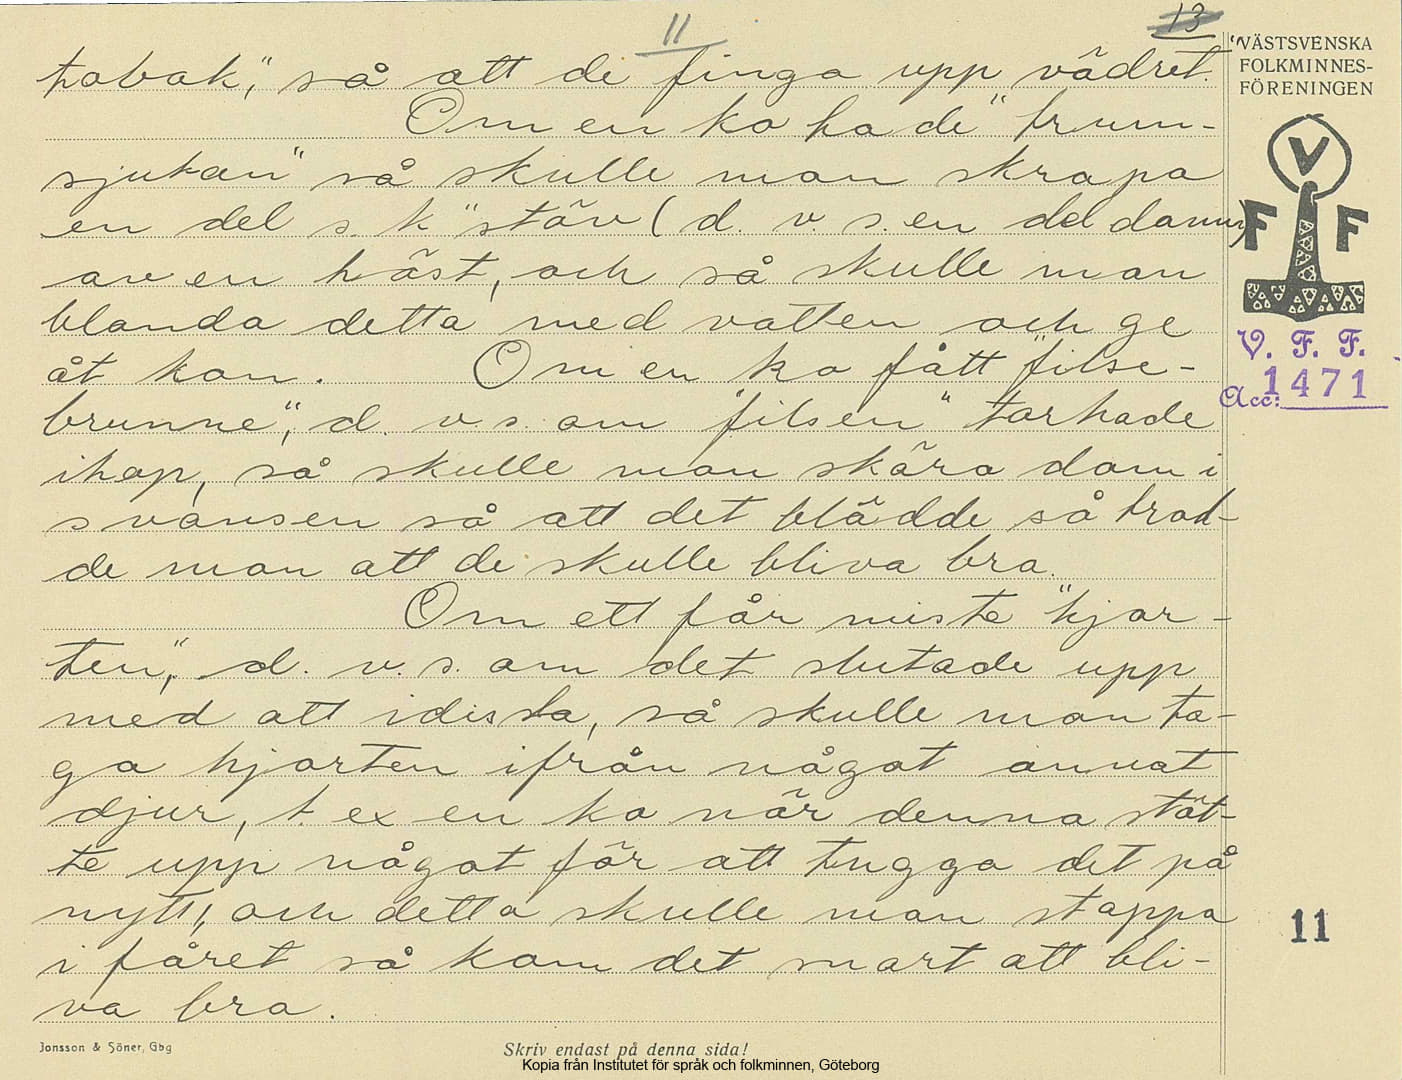 11
13
tobak," så att de finga upp vädret."
Om en ko hade "trum-
sjukan" så skulle man skrapa
en del s. k "stäv (d. v. s. en del damm)
av en häst, och så skulle man
blanda detta med vatten och ge
åt kon. Om en ko fått "filse-
brunne", d. v. s. om "filsen" torkade
ihop, så skulle man skära dom i
svansen så att det blödde så trod-
de man att de skulle bliva bra.
Om ett får miste "hjor-
ten", d. v. s. om det slutade upp
med att idissla, så skulle man ta-
ga hjorten ifrån något annat
djur, t. ex en ko när denna stöt-
te upp något för att tugga det på
nytt, och detta skulle man stoppa
i fåret så kom det snart att bli-
va bra.
VÄSTSVENSKA
FOLKMINNES-
FÖRENINGEN
V
F F
V. F. F.
Acc: 1471
11
Jonsson & Söner, Gbg
Skriv endast på denna sida!
Kopia från Institutet för språk och folkminnen, Göteborg